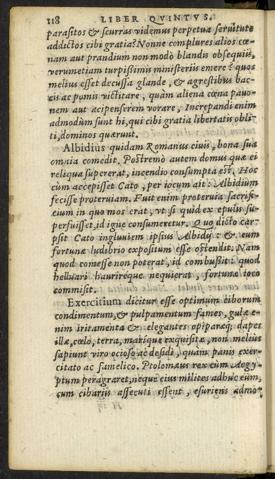 118 LIBER QVINTVS.
parasitos & scurras videmus perpetua seruitute
addictos cibi gratia? Nonne complures alios cœ-
nam aut prandium non modò blandis obsequiis,
verumetiam turpissimis ministeriis emere? quos
melius esset decussa glande, & agrestibus bac-
cis ac pomis victitare, quàm aliena cœna pauo-
nem aut acipenserem vorare, Increpandi enim
admodum sunt hi, qui cibi gratia libertatis obli-
ti, dominos quærunt.
Albidius quidam Romanus ciuis, bona sua
omnia comedit. Postremò autem domus quæ ei
reliqua supererat, incendio consumpta est. Hoc
cùm accepisset Cato, per iocum ait: Albidium
fecisse proteruiam. Fuit enim proteruia sacrifi-
cium in quo mos erat, vt si quid ex epulis su-
perfuisset, id igne consumeretur. Quo dicto car-
psit Cato ingluuiem ipsius Albidij: & eum
fortunæ ludibrio expositum esse ostendit. Nam
quod comesse non poterat, id combussit: quod
helluari haurireque nequierat, fortunæ ioco
commisit.
Exercitium dicitur esse optimum ciborum
condimentum, & pulpamentum fames, gulæ e-
nim iritamenta & elegantes opiparæq; dapes
illæ, cœlo, terra, marique exquisitæ, non melius
sapiunt viro ocioso ac desidi, quàm panis exer-
citato ac famelico. Ptolomæus rex cùm Aegy-
ptum peragraret, neque eius milites adhuc eum,
cum cibariis assecuti essent, esuriens admo-